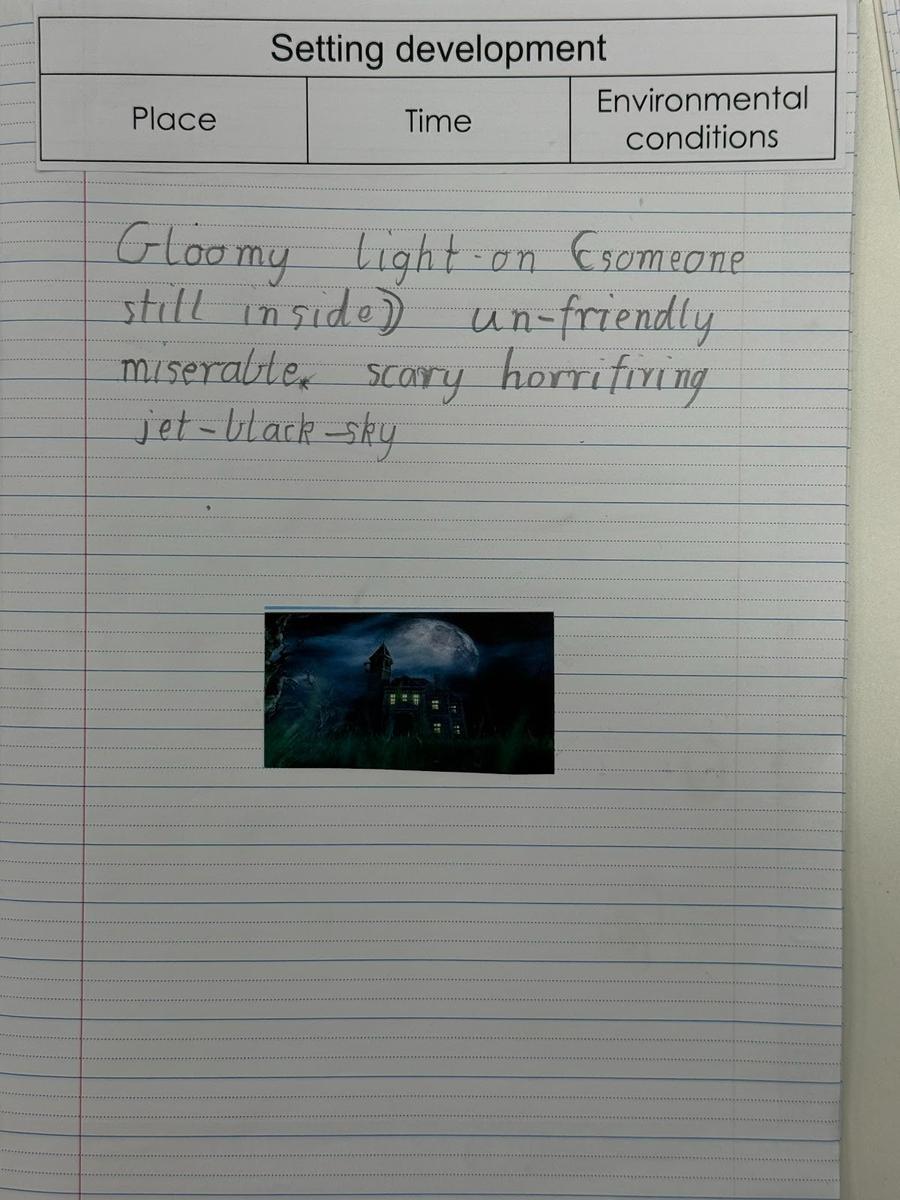 Setting development
Place
Time
Environmental
conditions
Gloomy light-on ((someone
still inside)) un-friendly
miserable. scary horrifiring
jet-black-sky